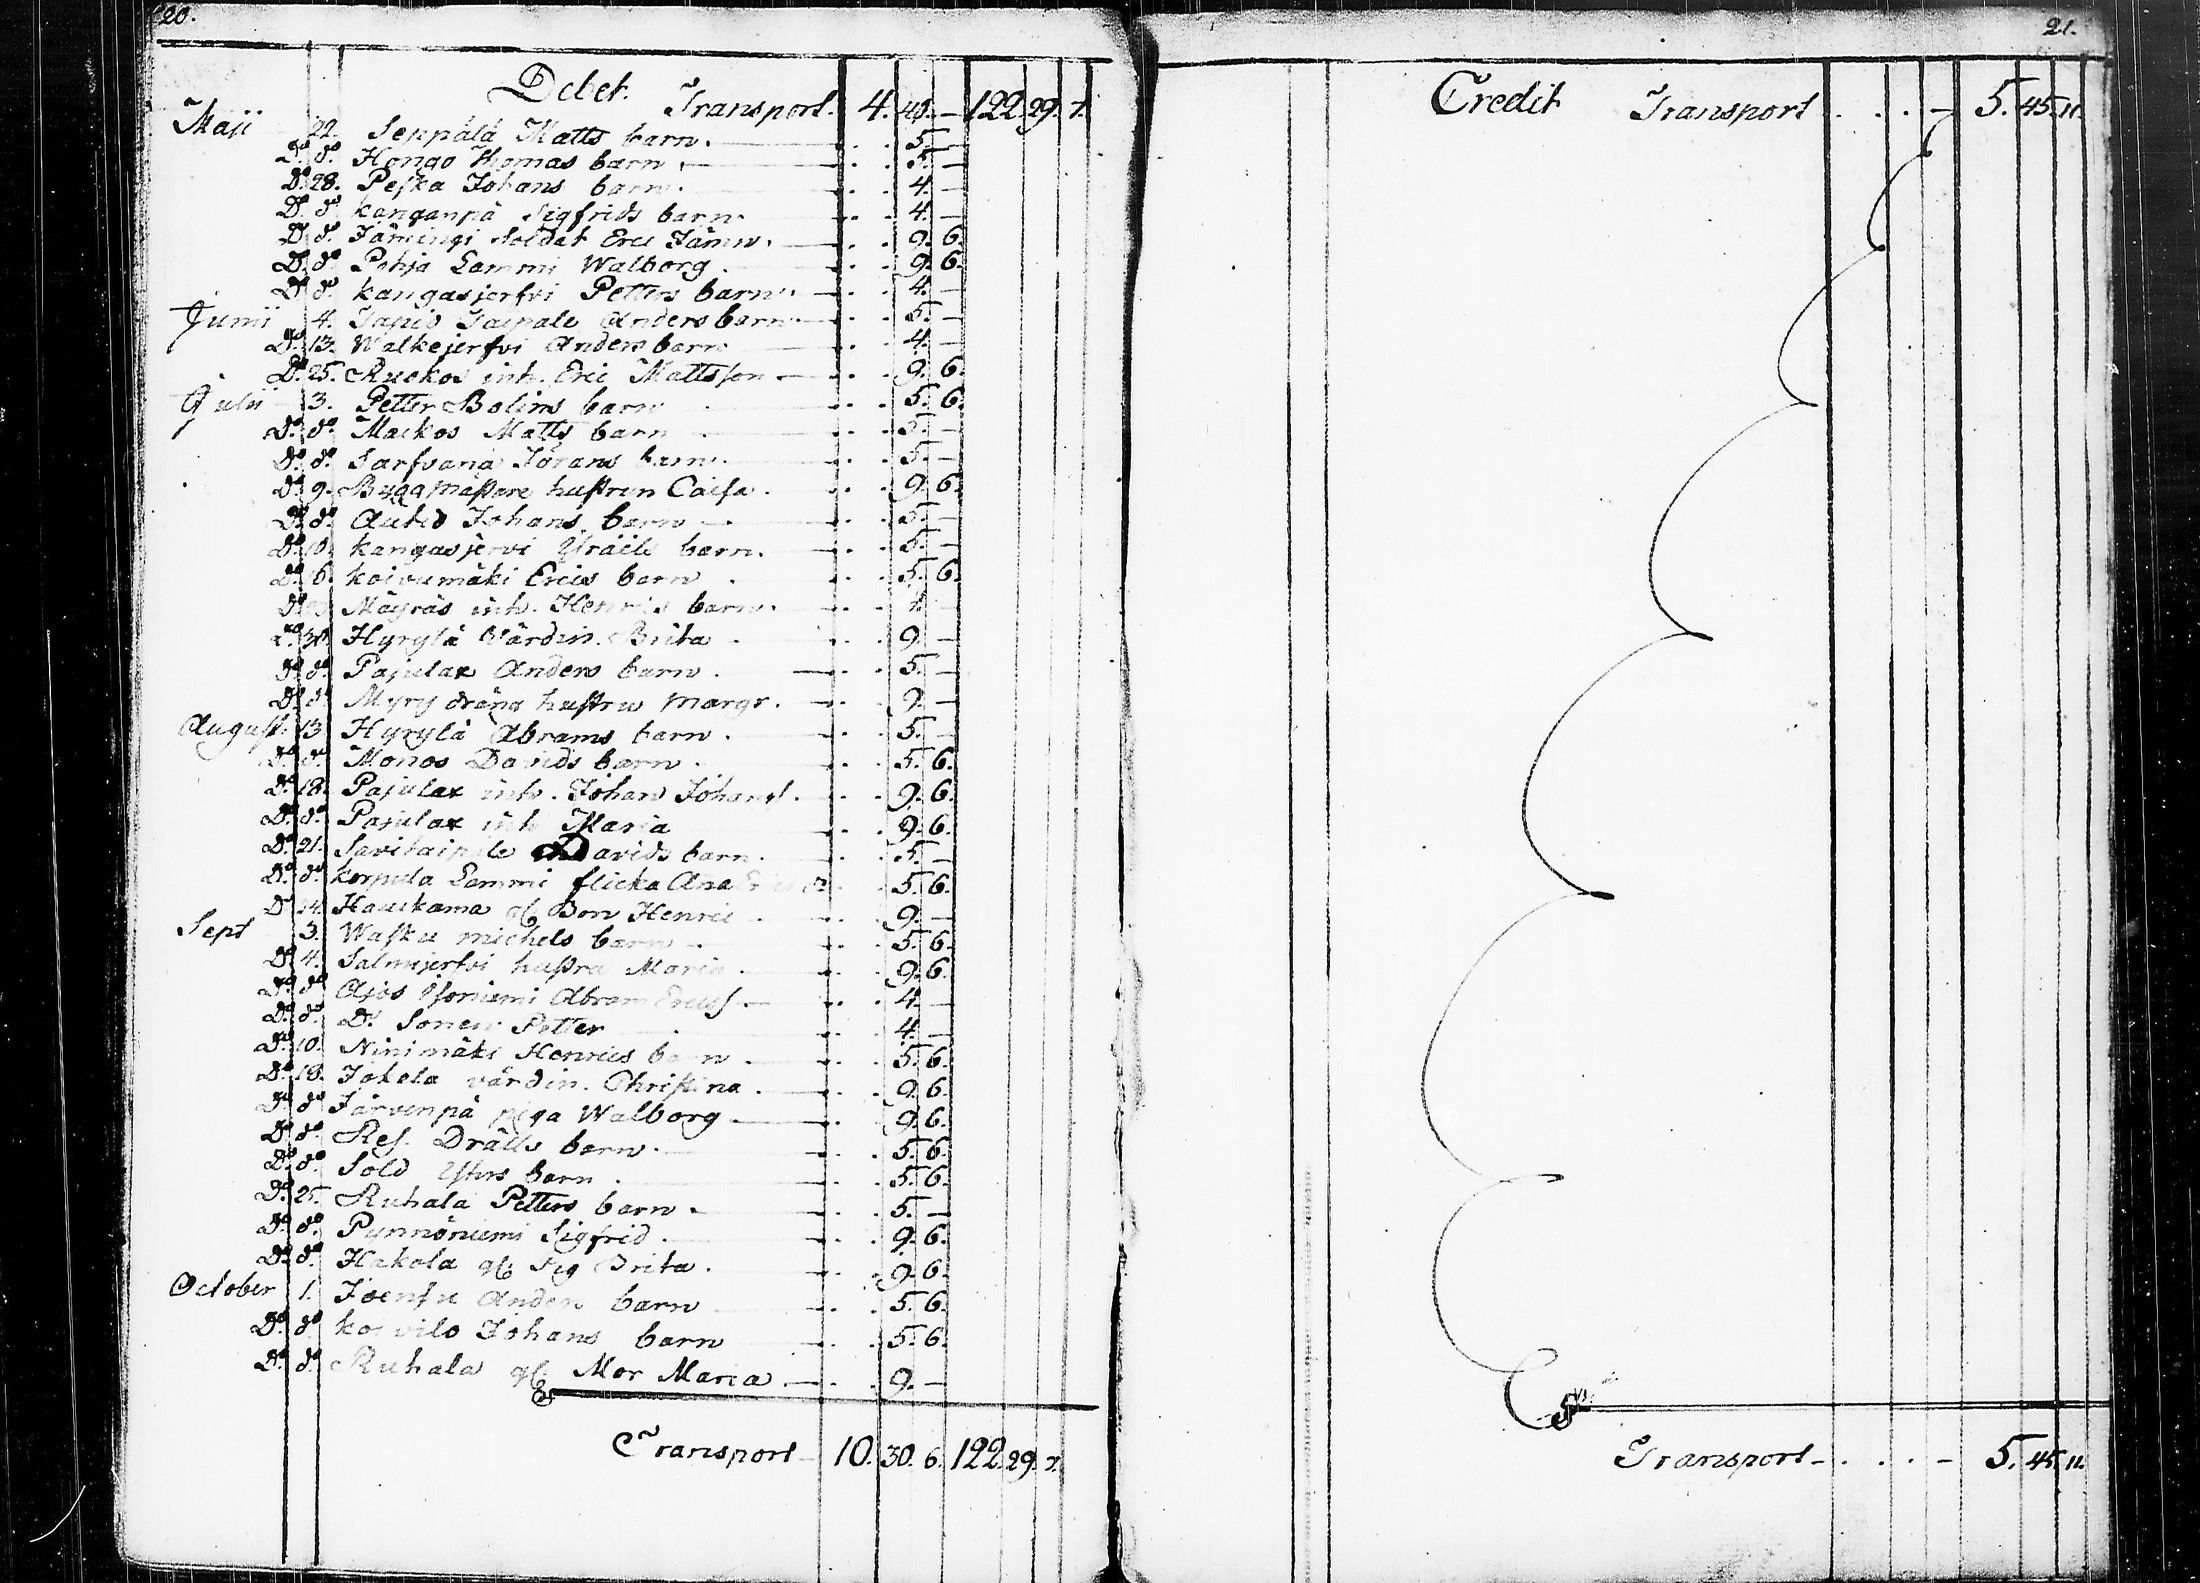 20.
Debet. Transport. 4. 41. — 122. 29. 7.
Maji 22. Seppälä Matts barn. 5. —
Do do Hongo Thomas barn 5. —
Do 28. Peska Johans barn. 4. —
Do do kanganpä Sigfrids barn. 4. —
Do do Jämingi Soldat Eric Jämn. 9. 6.
Do do Pohja Lammi Walborg. 9. 6.
Do do kangasjerfvi Petters barn. 4. —
Junii 4. Taipale Anders barn 5. —
Do 13. Walkejerfvi Anders barn 4. —
Do 25. Ruokos inh. Eric Mattsson 9. 6.
Julii 3. Petter Bolims barn 5. 6.
Do do Maikos Matts barn 5. —
Do do Sarfvana Jörans barn. 5. —
Do 9. Byggmästare hustrun Caisa. 9. 6.
Do do Autio Johans barn 5. —
Do 10. kangasjervi Israels barn. 5. —
Do 16. koivumäki Erics barn. 5. 6.
do Mäyräs inh. Henrics barn. 4. —
Do 30. Hyrylä Värdin. Brita. 9. —
Do do Pajulax Anders barn. 5. —
Do do Myry dräng hustru margr. 9. —
August. 13. Hyrylä Abrams barn. 5. —
Do do Monos Davids barn. 5. 6.
Do 18. Pajulax inh. Johan Johans. 9. 6.
Do do Pajulax inh Maria 9. 6.
Do 21. Savitaipale Davids barn. 5. —
Do do korpula Lammi flicka Ana 5. 6.
Do 14. Haukama gl. Bon Henric. 9. —
Sept 3. Wasku michels barn 5. 6.
Do 4. Salmijerfvi hustru Maria. 9. 6.
Do do Ajos Isoniemi Abram Erics. 4. —
Do do Do Sonen Petter 4. —
Do 10. Ninimäki Henrics barn. 5. 6.
Do 18. Jokela värdin. Christina. 9. 6.
Do do Järvenpä piga Walborg 9. 6.
Do do Res. Drälls barn. 5. 6.
Do do Sold barn. 5. 6.
Do 25. Ruhala Petters barn. 5. —
Do do Pynnöniemi Sigfrid. 9. 6.
Do do Hakola gl. Pig Brita. 9. 6.
October 1. Joensu Anders barn 5. 6.
Do do koivilo Johans barn 5. 6.
Do do Ruhala gl. Mor Maria. 9. —
Transport 10. 30. 6. 122. 29. 7.
21.
Credit Transport . . . — 5. 45. 11.
Transport — . . . — 5. 45. 11.